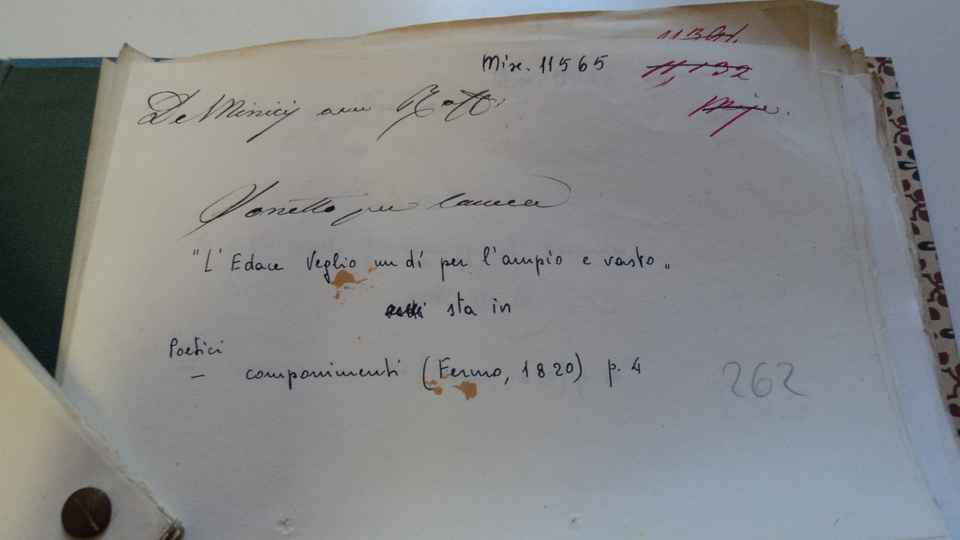 Misc. 11565
De Minicij avv Raff.
Sonetto per laurea
"L'Edace Veglio un dí per l'ampio e vasto„
sta in
Poetici
— componimenti (Fermo, 1820) p. 4
262